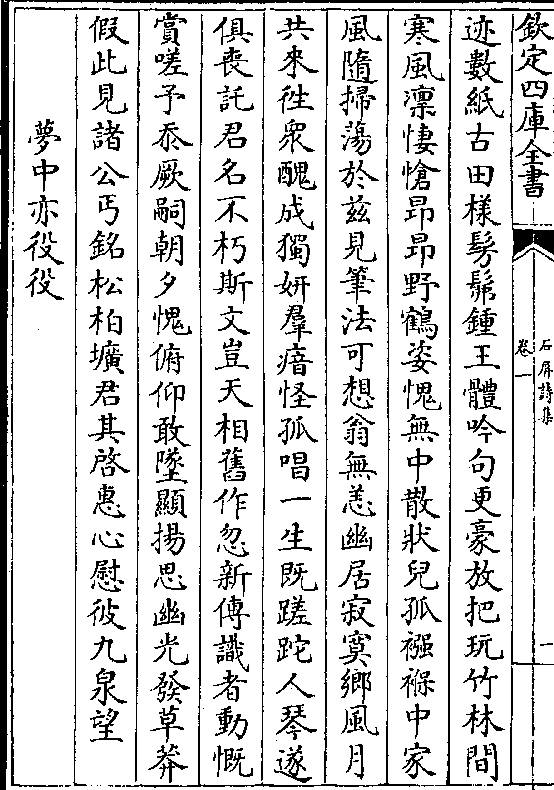 欽定四庫全書
石屏詩集
卷一
一
迹數紙古田様髣髴鍾王體吟句更豪放把玩竹林間
寒風凛悽愴昂昂野鶴姿愧無中散狀兒孤襁褓中家
風隨掃蕩於兹見筆法可想翁無恙幽居寂寞鄉風月
共來徃衆醜成獨妍羣瘖怪孤唱一生既蹉跎人琴遂
俱喪託君名不朽斯文豈天相舊作忽新傳識者動慨
賞嗟予忝厥嗣朝夕愧俯仰敢墜顯揚思幽光發草莽
假此見諸公丐銘松柏壙君其啓惠心慰彼九泉望
夢中亦役役